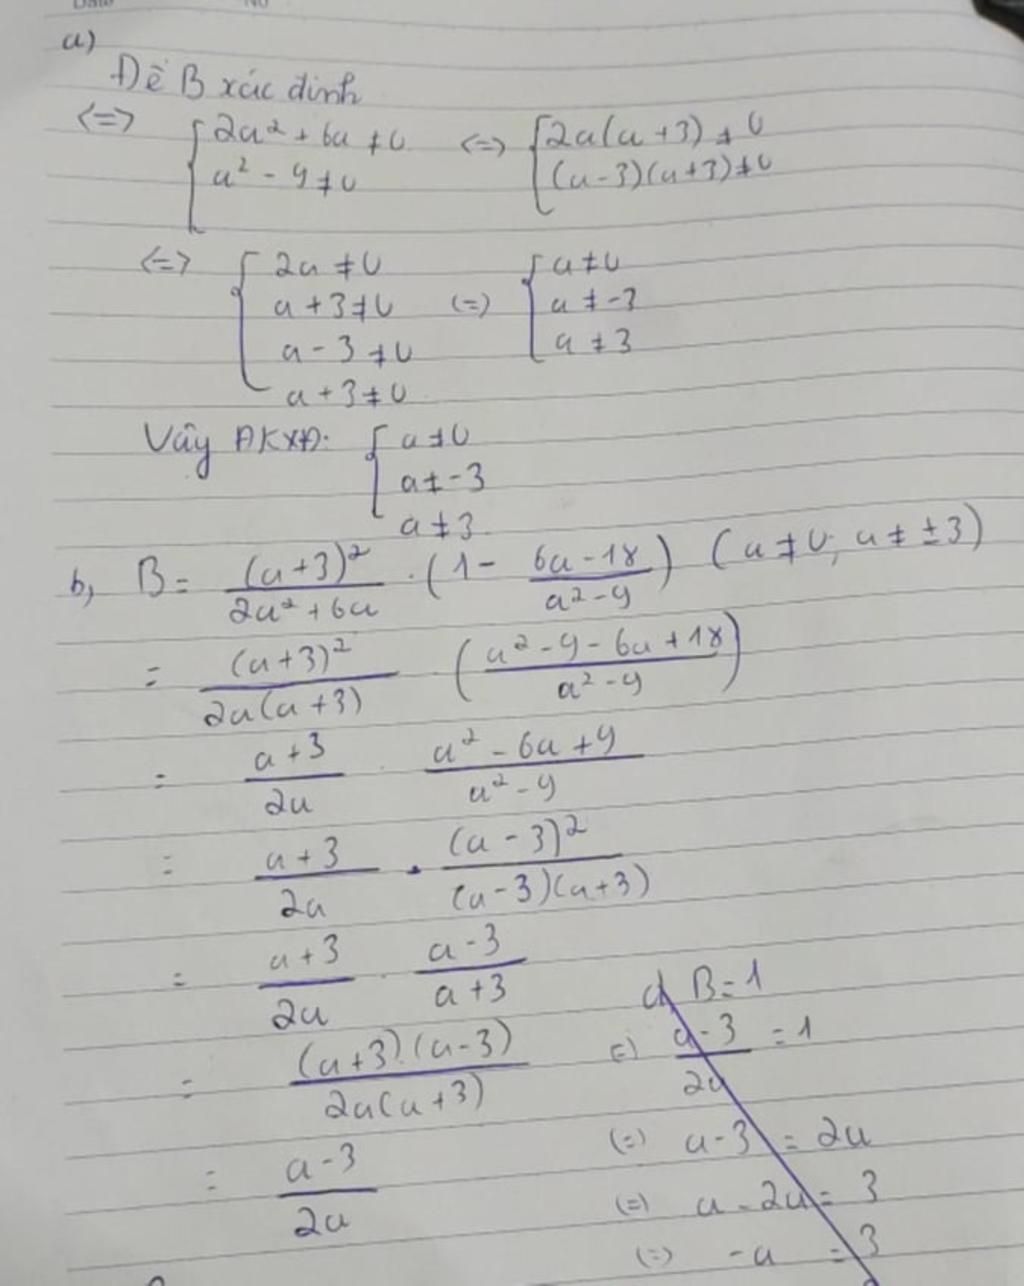 Date No
a)
Để B xác định
<=> { 2a² + 6a ≠ 0 <=> { 2a(a + 3) ≠ 0
a² - 9 ≠ 0 (a - 3)(a + 3) ≠ 0
<=> { 2a ≠ 0 { a ≠ 0
a + 3 ≠ 0 (=) a ≠ -3
a - 3 ≠ 0 a ≠ 3
a + 3 ≠ 0
Vậy ĐKXĐ: { a ≠ 0
a ≠ -3
a ≠ 3
b, B = (a + 3)² / (2a² + 6a) . (1 - (6a - 18) / (a² - 9)) (a ≠ 0; a ≠ ±3)
= (a + 3)² / 2a(a + 3) . ((a² - 9 - 6a + 18) / (a² - 9))
= (a + 3) / 2a . (a² - 6a + 9) / (a² - 9)
= (a + 3) / 2a . (a - 3)² / (a - 3)(a + 3)
= (a + 3) / 2a . (a - 3) / (a + 3)
= (a + 3).(a - 3) / 2a(a + 3)
= (a - 3) / 2a
c) B = 1
(=) (a - 3) / 2a = 1
(=) a - 3 = 2a
(=) a - 2a = 3
(=) -a = 3